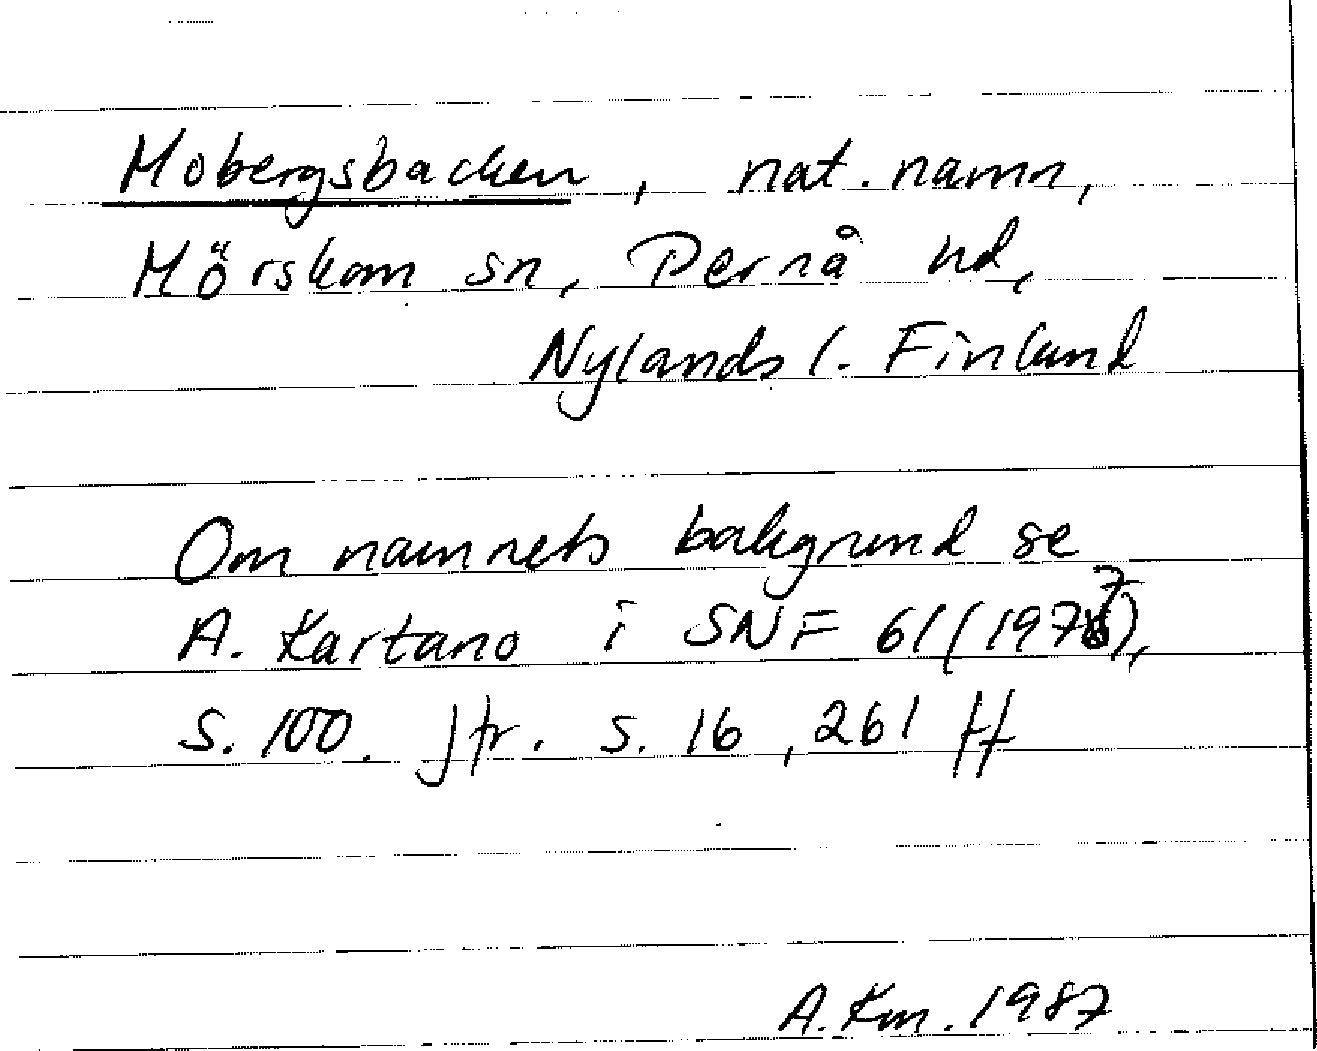 Mobergsbacken, nat. namn,
Mörskom sn, Pernå hd,
Nylands l. Finland
Om namnets bakgrund se
A. Kartano i SNF 61 (1977),
s. 100. Jfr. s. 16, 261 ff
A. Km. 1987